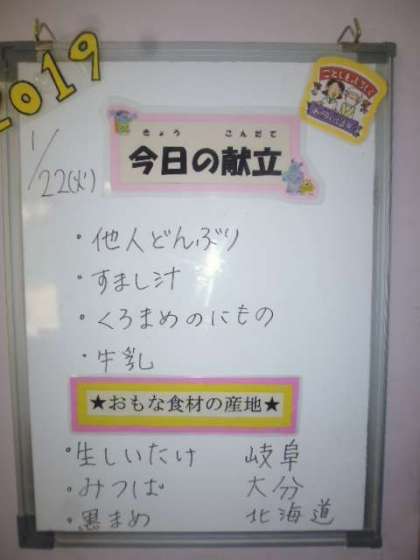 2019
1/22(火)
きょう こんだて
今日の献立
・他人どんぶり
・すまし汁
・くろまめのにもの
・牛乳
★おもな食材の産地★
・生しいたけ 岐阜
・みつば 大分
・黒まめ 北海道